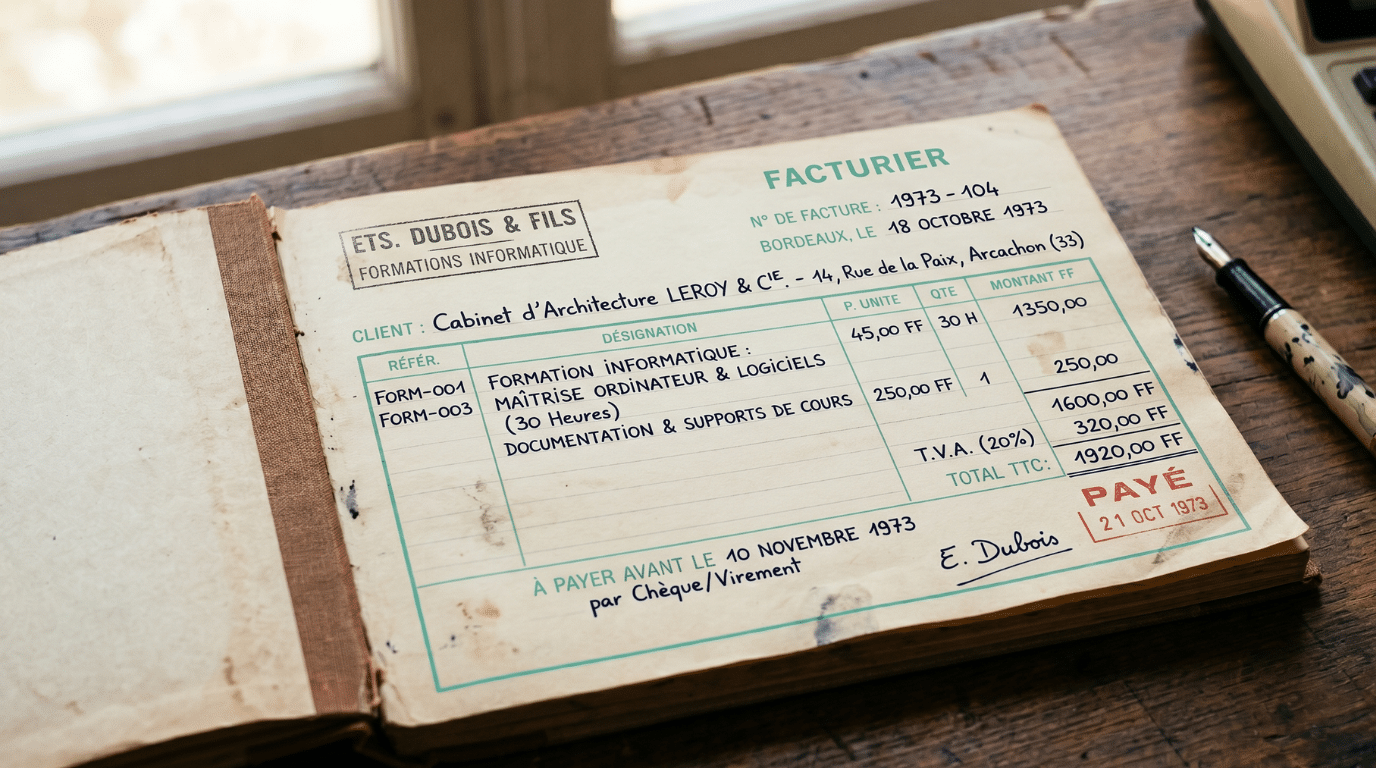 FACTURIER
ETS. DUBOIS & FILS
FORMATIONS INFORMATIQUE
N° DE FACTURE : 1973 - 104
BORDEAUX, LE 18 OCTOBRE 1973
CLIENT : Cabinet d'Architecture LEROY & CIE. - 14, Rue de la Paix, Arcachon (33)
RÉFÉR. DÉSIGNATION P. UNITE QTE MONTANT FF
FORM-001 FORMATION INFORMATIQUE : 45,00 FF 30 H 1350,00
MAÎTRISE ORDINATEUR & LOGICIELS
(30 Heures)
FORM-003 DOCUMENTATION & SUPPORTS DE COURS 250,00 FF 1 250,00
1600,00 FF
T.V.A. (20%) 320,00 FF
TOTAL TTC: 1920,00 FF
PAYÉ
21 OCT 1973
À PAYER AVANT LE 10 NOVEMBRE 1973
par Chèque/Virement
E. Dubois